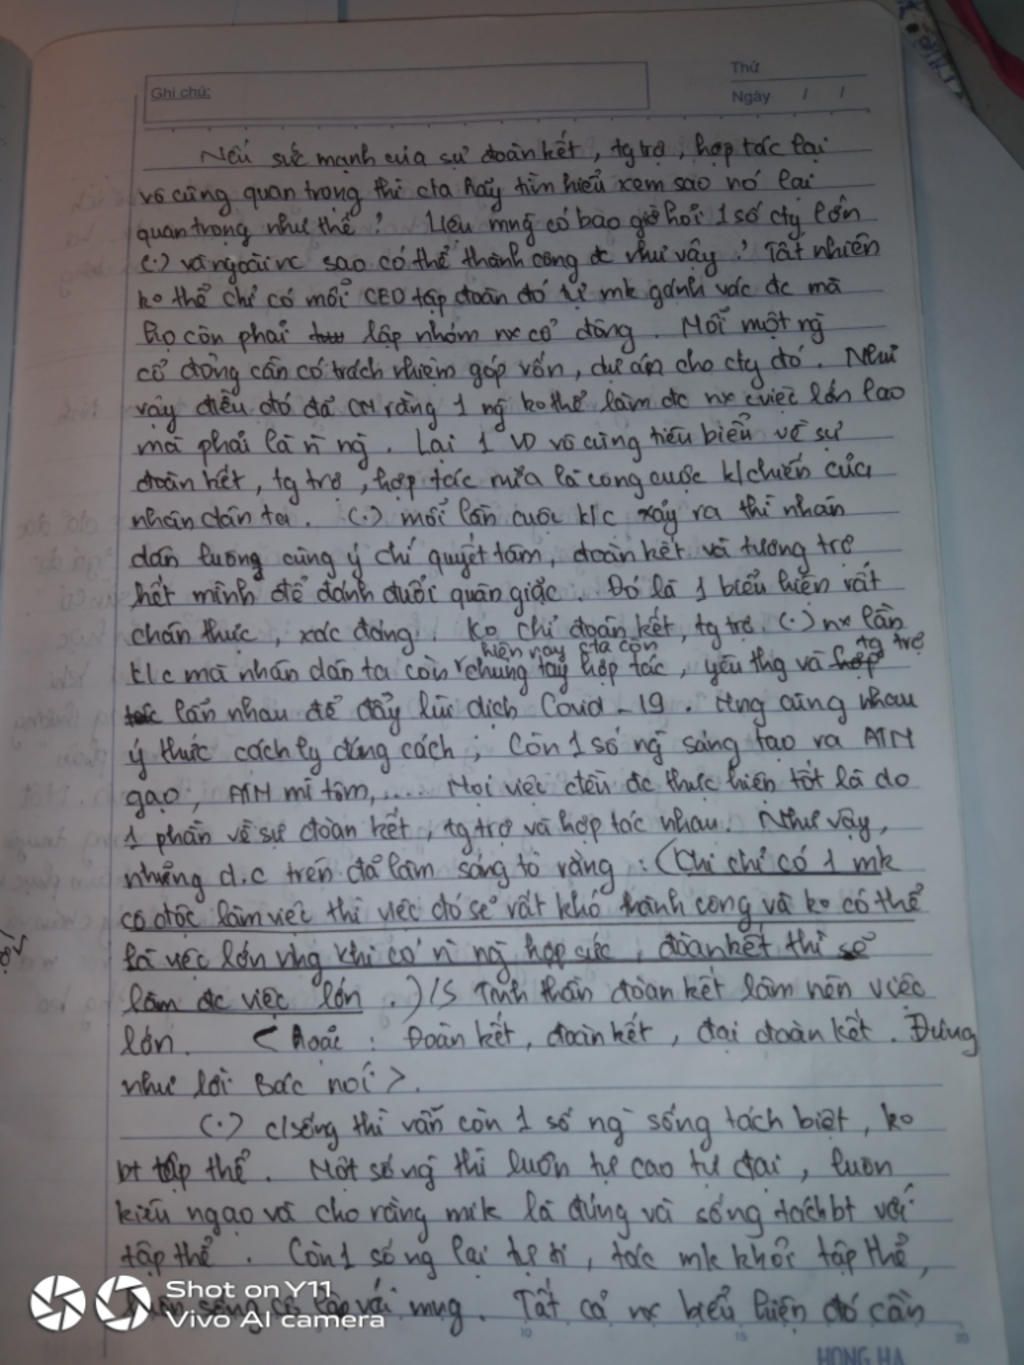 Thứ
Ghi chú:
Ngày / /
Nếu sức mạnh của sự đoàn kết, tg trợ, hợp tác lại
vô cùng quan trọng thì cta hãy tìm hiểu xem sao nó lại
quan trọng như thế? Liệu mng có bao giờ hỏi 1 số cty lớn
(.) và ngoài nc sao có thể thành công đc như vậy? Tất nhiên
ko thể chỉ có mỗi CEO tập đoàn đó tự mk gánh vác đc mà
họ còn phải lập nhóm nx cổ đông. Mỗi một ng
cổ đông cần có trách nhiệm góp vốn, dự án cho cty đó. Như
vậy điều đó đã CM rằng 1 ng ko thể làm đc nx cviệc lớn lao
mà phải là n ng. Lại 1 VD vô cùng tiêu biểu về sự
đoàn kết, tg trợ, hợp tác nữa là công cuộc k/chiến của
nhân dân ta. (.) mỗi lần cuộc k/c xảy ra thì nhân
dân luong cùng ý chí quyết tâm, đoàn kết và tương trợ
hết mình để đánh đuổi quân giặc. Đó là 1 biểu hiện rất
chân thực, xác đáng. Ko chỉ đoàn kết, tg trợ (.) nx lần
hiện nay cta còn tg trợ
k/c mà nhân dân ta còn chung tay hợp tác, yêu thg và hợp
tác lẫn nhau để đẩy lùi dịch Covid - 19. cùng nhau
ý thức cách ly đúng cách; Còn 1 số ng sáng tạo ra ATM
gạo, ATM mì tôm,.... Mọi việc đều đc thực hiện tốt là do
1 phần về sự đoàn kết, tg trợ và hợp tác nhau. Như vậy,
những d.c trên đã làm sáng tỏ rằng: (Khi chỉ có 1 mk
cô độc làm việc thì việc đó sẽ rất khó thành công và ko có thể
là việc lớn nhg khi có n ng hợp sức, đoàn kết thì sẽ
làm đc việc lớn.) /S Tinh thần đoàn kết làm nên việc
lớn. < hoặc: Đoàn kết, đoàn kết, đại đoàn kết. Đúng
như lời Bác nói >.
(.) c/sống thì vẫn còn 1 số ng sống tách biệt, ko
bt tập thể. Một số ng thì luôn tự cao tự đại, luôn
kiêu ngạo và cho rằng mk là đúng và sống tách bt với
tập thể. Còn 1 số ng lại tự ti, tác mk khỏi tập thể,
sống cô lập với mng. Tất cả nx biểu hiện đó cần
Shot on Y11
Vivo AI camera
10 15 20
HONG HA